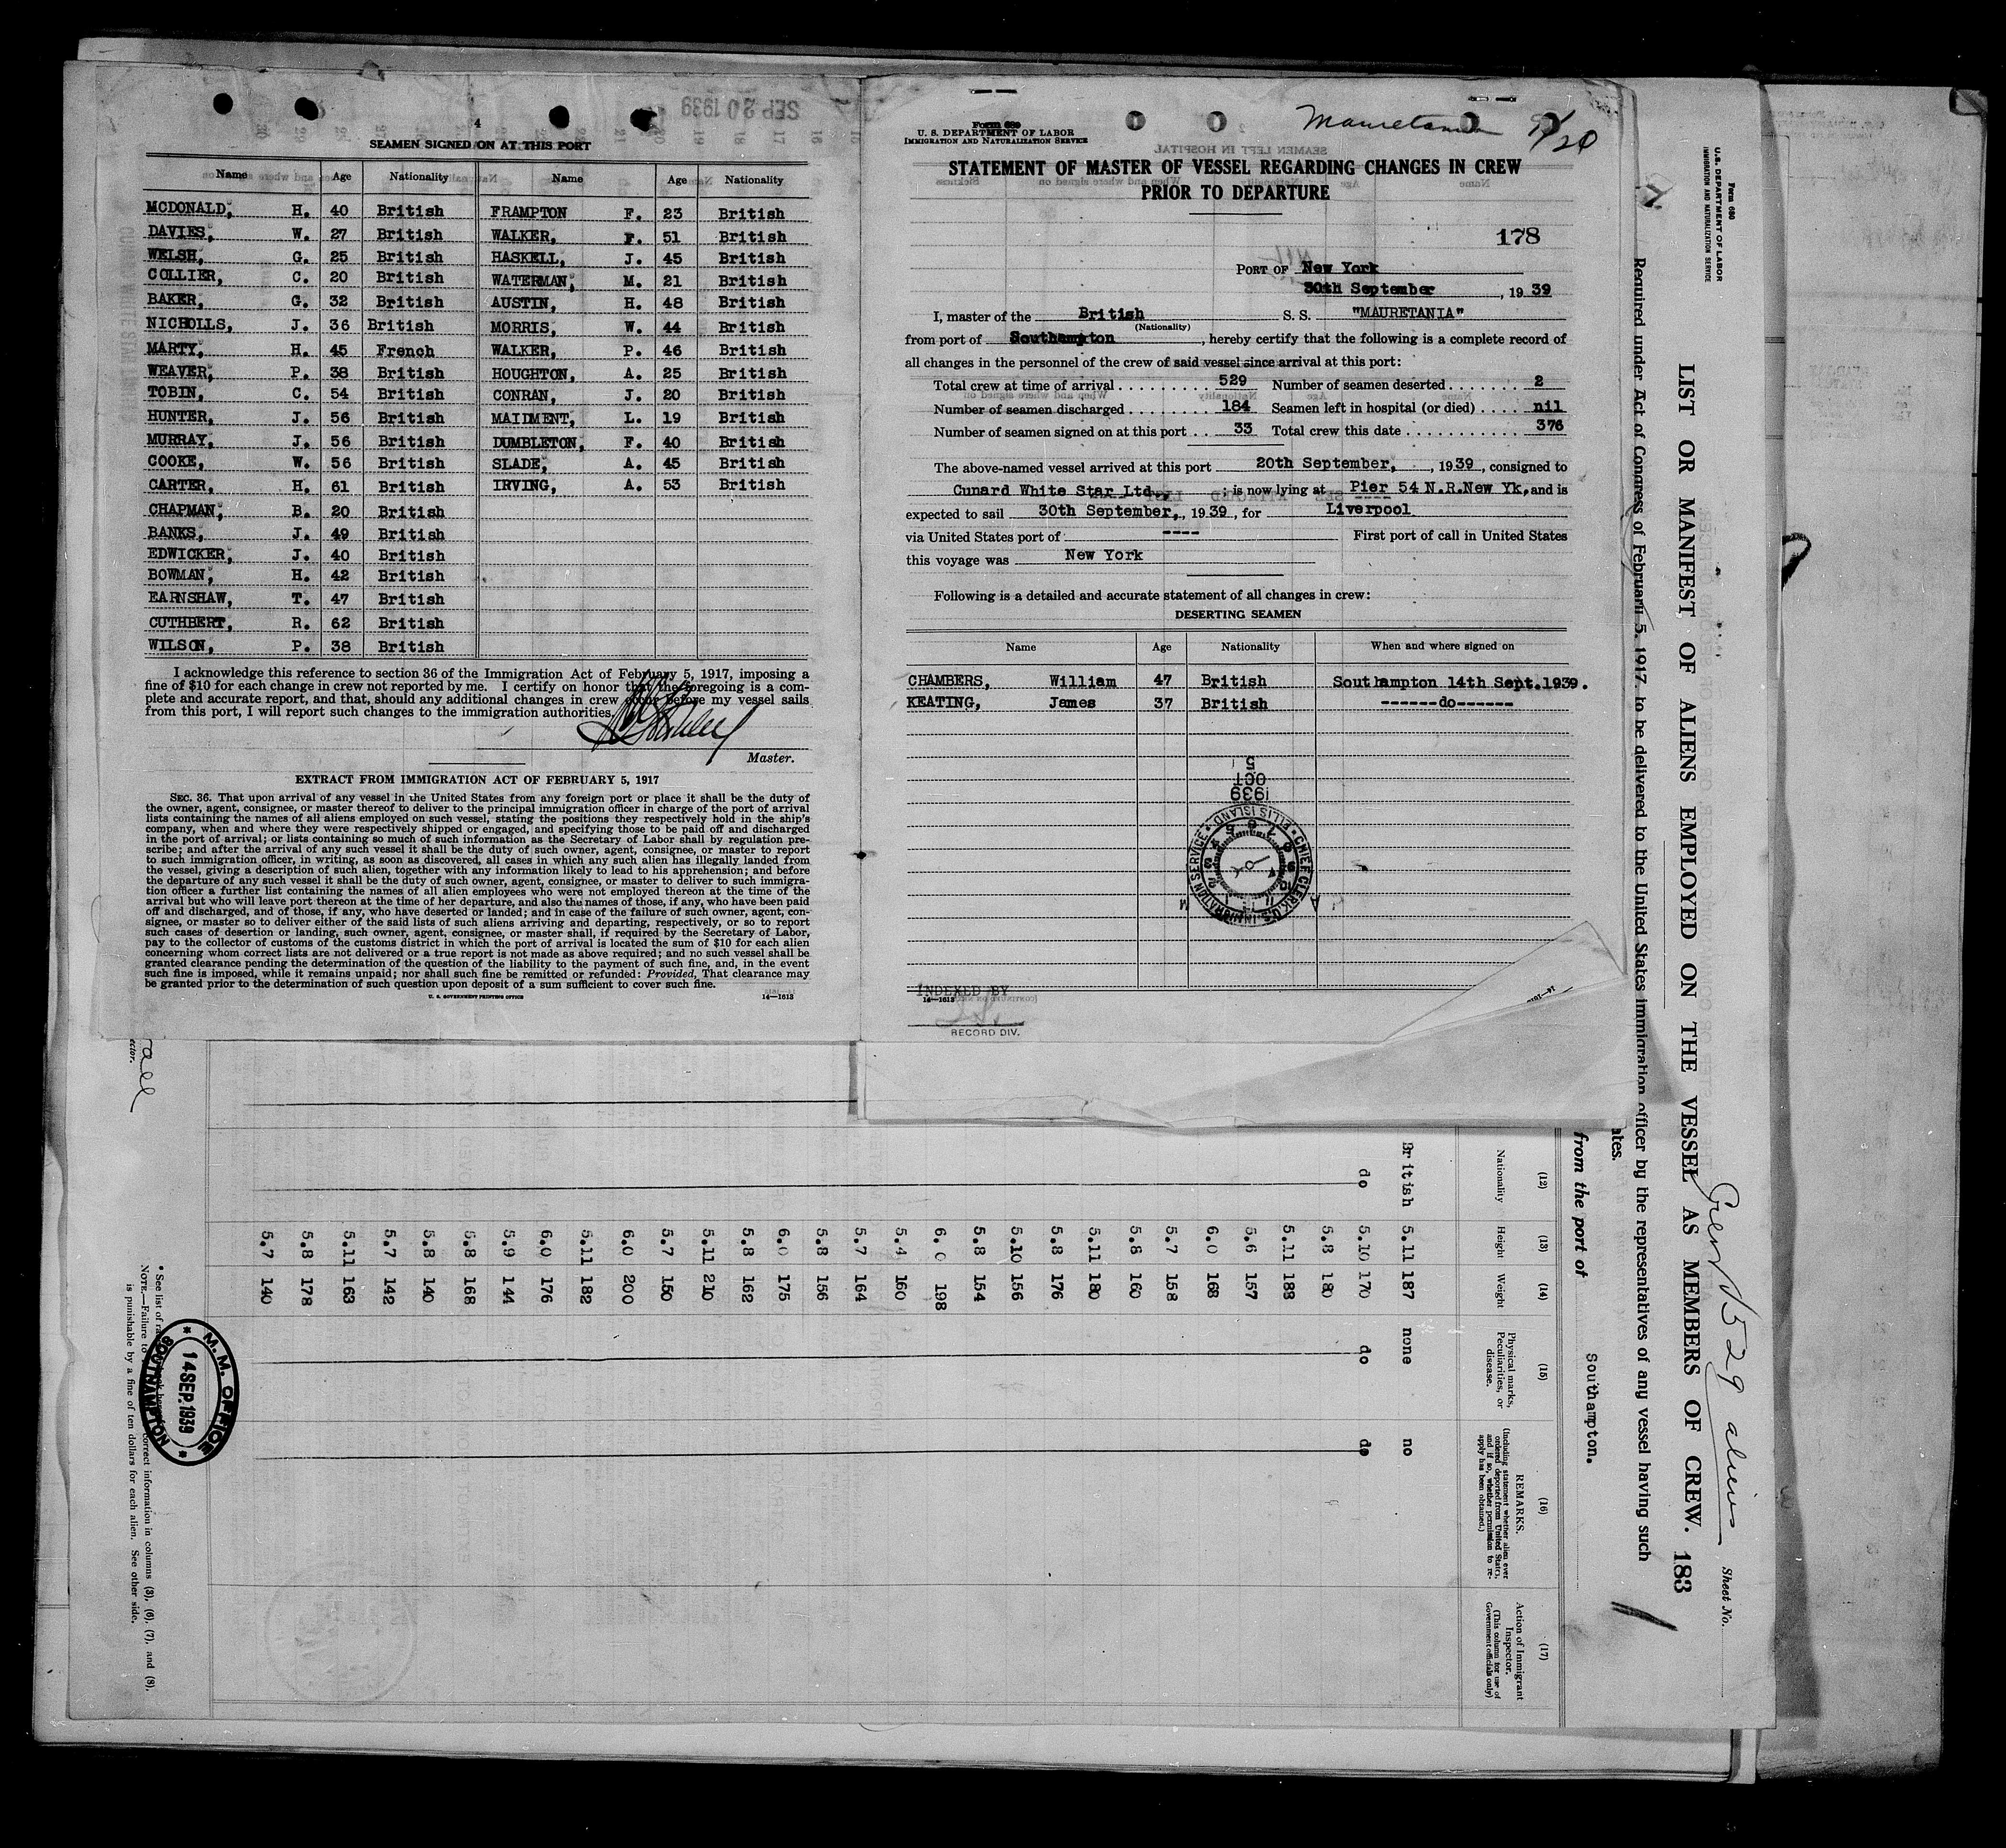 SEP 20 1939
4
SEAMEN SIGNED ON AT THIS PORT
Name Age Nationality Name Age Nationality
MCDONALD, H. 40 British FRAMPTON F. 23 British
DAVIES, W. 27 British WALKER, F. 51 British
WELSH, G. 25 British HASKELL, J. 45 British
COLLIER, C. 20 British WATERMAN, M. 21 British
BAKER, G. 32 British AUSTIN, H. 48 British
NICHOLLS, J. 36 British MORRIS, W. 44 British
MARTY, H. 45 French WALKER, P. 46 British
WEAVER, P. 38 British HOUGHTON, A. 25 British
TOBIN, C. 54 British CONRAN, J. 20 British
HUNTER, J. 56 British MAIDMENT, L. 19 British
MURRAY, J. 56 British DUMBLETON, F. 40 British
COOKE, W. 56 British SLADE, A. 45 British
CARTER, H. 61 British IRVING, A. 53 British
CHAPMAN, B. 20 British
BANKS, J. 49 British
EDWICKER, J. 40 British
BOWMAN, H. 42 British
EARNSHAW, T. 47 British
CUTHBERT, R. 62 British
WILSON, P. 38 British
I acknowledge this reference to section 36 of the Immigration Act of February 5, 1917, imposing a
fine of $10 for each change in crew not reported by me. I certify on honor that the foregoing is a com-
plete and accurate report, and that, should any additional changes in crew occur before my vessel sails
from this port, I will report such changes to the immigration authorities.
Master.
EXTRACT FROM IMMIGRATION ACT OF FEBRUARY 5, 1917
SEC. 36. That upon arrival of any vessel in the United States from any foreign port or place it shall be the duty of
the owner, agent, consignee, or master thereof to deliver to the principal immigration officer in charge of the port of arrival
lists containing the names of all aliens employed on such vessel, stating the positions they respectively hold in the ship's
company, when and where they were respectively shipped or engaged, and specifying those to be paid off and discharged
in the port of arrival; or lists containing so much of such information as the Secretary of Labor shall by regulation pre-
scribe; and after the arrival of any such vessel it shall be the duty of such owner, agent, consignee, or master to report
to such immigration officer, in writing, as soon as discovered, all cases in which any such alien has illegally landed from
the vessel, giving a description of such alien, together with any information likely to lead to his apprehension; and before
the departure of any such vessel it shall be the duty of such owner, agent, consignee, or master to deliver to such immigra-
tion officer a further list containing the names of all alien employees who were not employed thereon at the time of the
arrival but who will leave port thereon at the time of her departure, and also the names of those, if any, who have been paid
off and discharged, and of those, if any, who have deserted or landed; and in case of the failure of such owner, agent, con-
signee, or master so to deliver either of the said lists of such aliens arriving and departing, respectively, or so to report
such cases of desertion or landing, such owner, agent, consignee, or master shall, if required by the Secretary of Labor,
pay to the collector of customs of the customs district in which the port of arrival is located the sum of $10 for each alien
concerning whom correct lists are not delivered or a true report is not made as above required; and no such vessel shall be
granted clearance pending the determination of the question of the liability to the payment of such fine, and, in the event
such fine is imposed, while it remains unpaid; nor shall such fine be remitted or refunded: Provided, That clearance may
be granted prior to the determination of such question upon deposit of a sum sufficient to cover such fine.
U. S. GOVERNMENT PRINTING OFFICE 14—1613
Form 680
U. S. DEPARTMENT OF LABOR
IMMIGRATION AND NATURALIZATION SERVICE
Mauretania 9/20
STATEMENT OF MASTER OF VESSEL REGARDING CHANGES IN CREW
PRIOR TO DEPARTURE
178
PORT OF New York
30th September, 1939
I, master of the British S. S. "MAURETANIA"
(Nationality)
from port of Southampton, hereby certify that the following is a complete record of
all changes in the personnel of the crew of said vessel since arrival at this port:
Total crew at time of arrival 529 Number of seamen deserted 2
Number of seamen discharged 184 Seamen left in hospital (or died) nil
Number of seamen signed on at this port 33 Total crew this date 376
The above-named vessel arrived at this port 20th September, , 1939, consigned to
Cunard White Star Ltd., ; is now lying at Pier 54 N.R.New Yk, and is
expected to sail 30th September, , 1939, for Liverpool
via United States port of ---- First port of call in United States
this voyage was New York
Following is a detailed and accurate statement of all changes in crew:
DESERTING SEAMEN
Name Age Nationality When and where signed on
CHAMBERS, William 47 British Southampton 14th Sept.1939.
KEATING, James 37 British ------do------
5
OCT
1939
CHIEF CLERK U.S. IMMIGRATION SERVICE ELLIS ISLAND
INDEXED BY
14—1613
RECORD DIV.
Form 680
U.S. DEPARTMENT OF LABOR
IMMIGRATION AND NATURALIZATION SERVICE
Sheet No.
529 aliens
LIST OR MANIFEST OF ALIENS EMPLOYED ON THE VESSEL AS MEMBERS OF CREW. 183
Required under Act of Congress of February 5, 1917, to be delivered to the United States immigration officer by the representatives of any vessel having such
from the port of Southampton.
(12) (13) (14) (15) (16) (17)
Nationality Height Weight Physical marks, Peculiarities, or disease. REMARKS. (Including statement whether alien ever ordered deported from United States, and if so, whether permission to re-apply has been obtained.) Action of Immigrant Inspector. (This column for use of Government officials only)
British 5.11 187 none no
do 5.10 170 do do
5.8 180
5.11 188
5.6 157
6.0 168
5.7 158
5.8 160
5.11 180
5.8 176
5.10 156
5.8 154
6.0 198
5.4 160
5.7 164
5.8 156
6.0 175
5.8 162
5.11 210
5.7 150
6.0 200
5.11 182
6.0 176
5.9 144
5.8 168
5.8 140
5.7 142
5.11 163
5.8 178
5.7 140
M. M. OFFICE
14 SEP. 1939
SOUTHAMPTON
* See list of
NOTE.—Failure to correct information in columns (3), (6), (7), and (8),
is punishable by a fine of ten dollars for each alien. See other side.